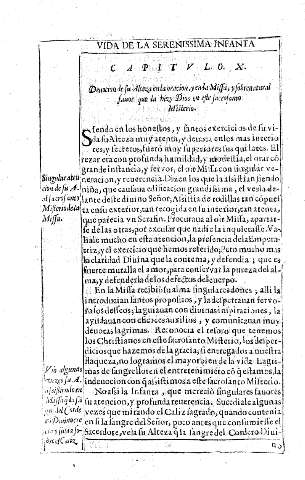 VIDA DE LA SERENISSIMA INFANTA
CAPITVLO. X.
Deuocion de su Alteza en la oracion, y en la Missa, y sobrenatural
fauor que la hizo Dios en este sacrosanto
Misterio.
Siendo en los honestos, y santos exercicios de su vi-
da su Alteza muy atenta, y deuota en los mas interio-
res, y secretos, fueron muy superiores sus quilates. El
rezar era con profunda humildad, y modestia, el orar cõ
grande instancia, y feruor, el oir Missa con singular ve-
neracion, y reuerencia. Dizen los que la assistian siendo
niña, que causaua edificacion grandissima, el verla de-
lante deste diuino Señor, Assistia de rodillas tan cõpuesta
en su exterior, tan recogida en su interior, tan atenta,
que parecia vn Serafin. Procuraua al oir Missa, aparta-
se de las otras, por escusar que nadie la inquietasse. Va-
liale mucho en esta atencion, la presencia de la Empera-
triz, y el exercicio que hemos referido, Pero mucho mas
la claridad Diuina que la contenia, y defendia; que es
fuerte muralla el amor, para conseruar la pureza del al-
ma, y defenderla de los defectos del cuerpo.
En la Missa recibiò su alma singulares dones, alli la
introducian santos propositos, y la despertauan feruo-
rosos desseos; la guiauan con diuinas inspiraciones, la
ayudauan con eficaces auxilios, y comunicauan muy
deuotas lagrimas. Reconocia el tesoro que tenemos
los Christianos en este sacrosanto Misterio, los desper-
dicios que hazemos de la gracia, si entregados a nuestra
flaqueza, no logramos el mayor bien de la vida. Lagri-
mas de sangre lloren el entretenimiẽto cõ q̃ estamos, la
indeuocion con q̃ assistimos a este sacrosanto Misterio.
No assi la Infanta, que mereciò singulares fauores
su atencion, y profunda reuerencia. Sucediale algunas
vezes que mirando el Caliz sagrado, quando contenia
en si la sangre del Señor, poco antes que consumiesse el
Sacerdote, veia su Alteza q̃ la sangre del Cordero Diui-
no
Singular atẽ-
cion de su A.
al sacrosanto
Misterio de la
Missa.
Viò algunas
vezes su A.